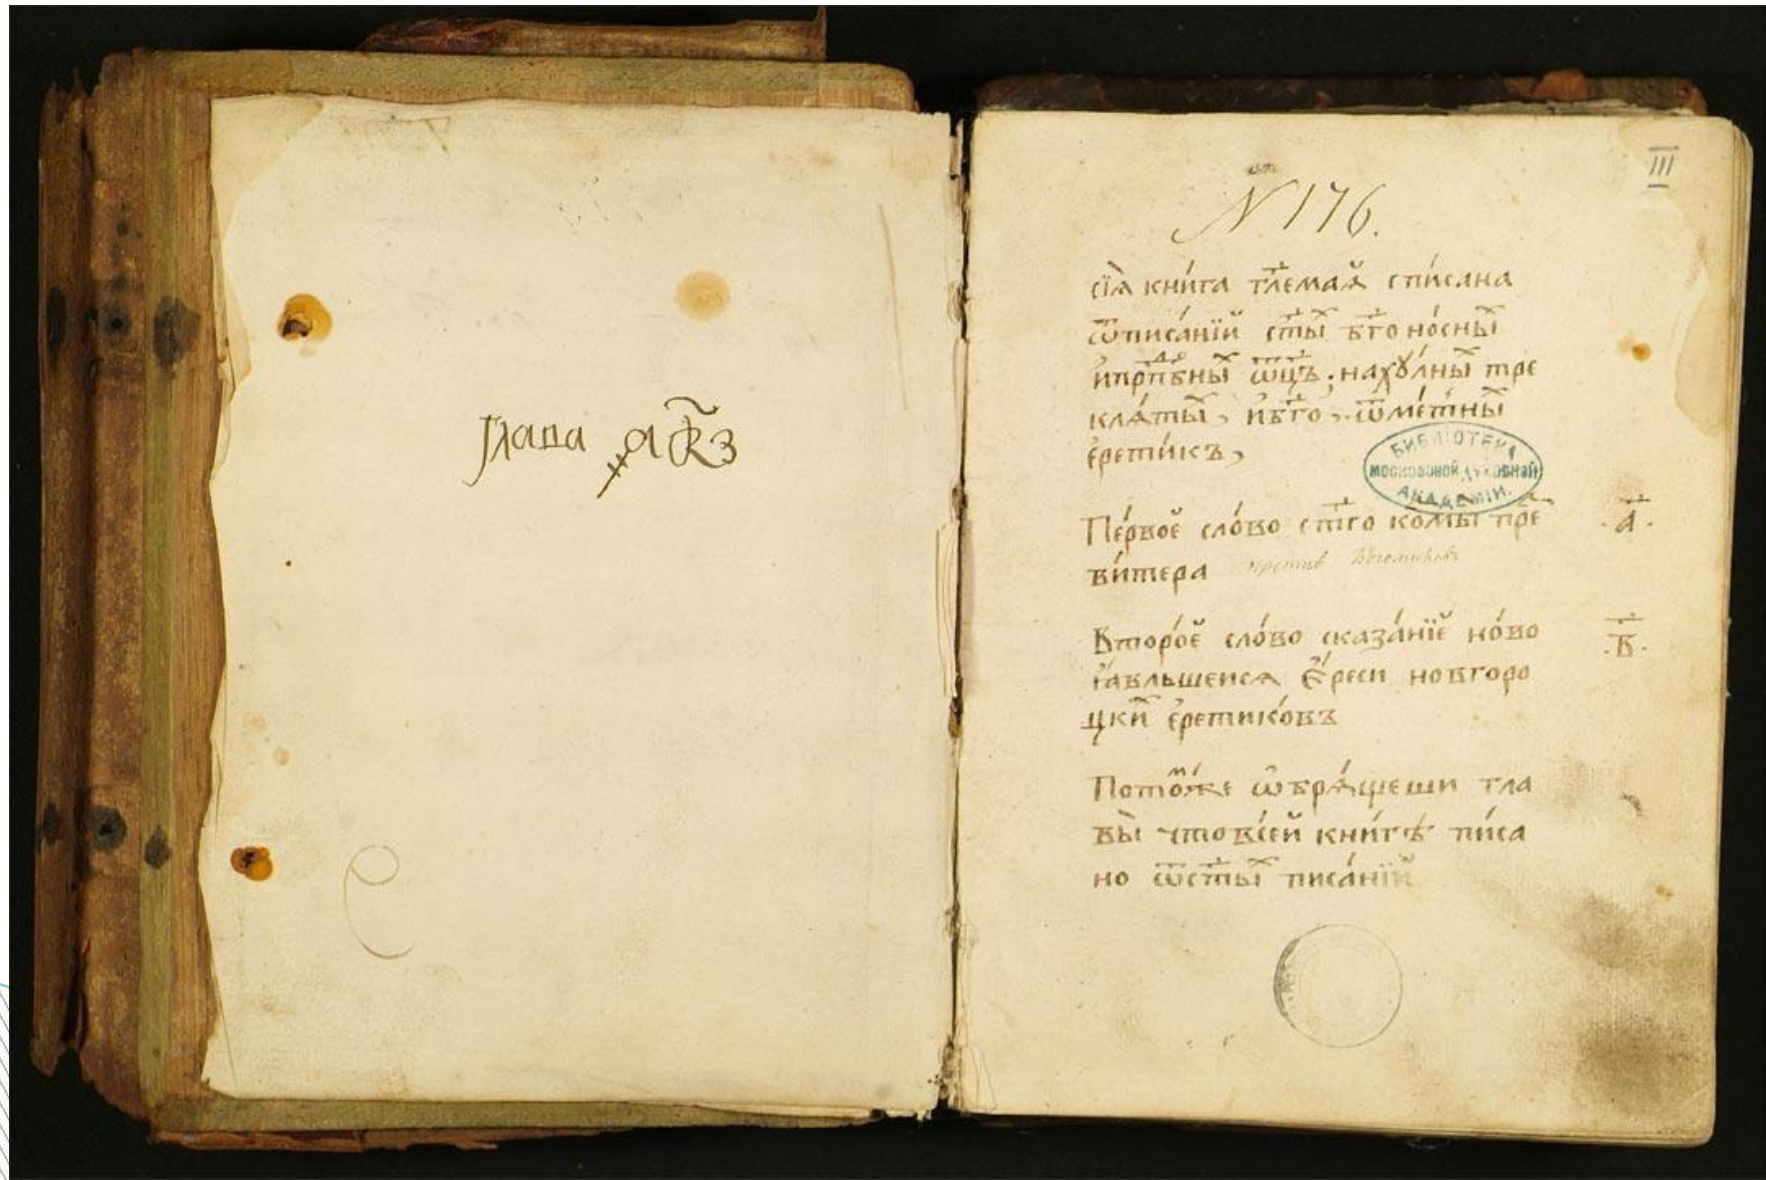 Глава ҂а҃ р҃к҃з
III
N 176.
сїѧ̀ кни́га гл҃емаѧ̆ спи́сана
ѿписа́нїй ст҃ыⷯ бг҃оно́сныⷯ
и҆прпⷣбныⷯ ѿц҃ъ, нахꙋ́лныⷯ тре
клѧ́тыⷯ, и҆бг҃о, ѿме́тныⷯ
є҆ре́тикъ,
БИБЛІОТЕКА
МОСКОВСКОЙ ДУХОВНОЙ
АКАДЕМІИ.
Пе́рвоӗ сло́во ст҃го козмы̀ пре .а҃.
ви́тера против Богомилов
Второ́ӗ сло́во сказа́нїӗ но́во .в҃.
ꙗ҆вльшеисѧ є҆́реси новгоро
цкиⷯ є҆ретико́въ
Потоⷨже ѡ҆брѧ́щеши гла
вы̀ что̀всеи̂ кни́гѣ пи́са
но ѿст҃ыⷯ писа́нїй